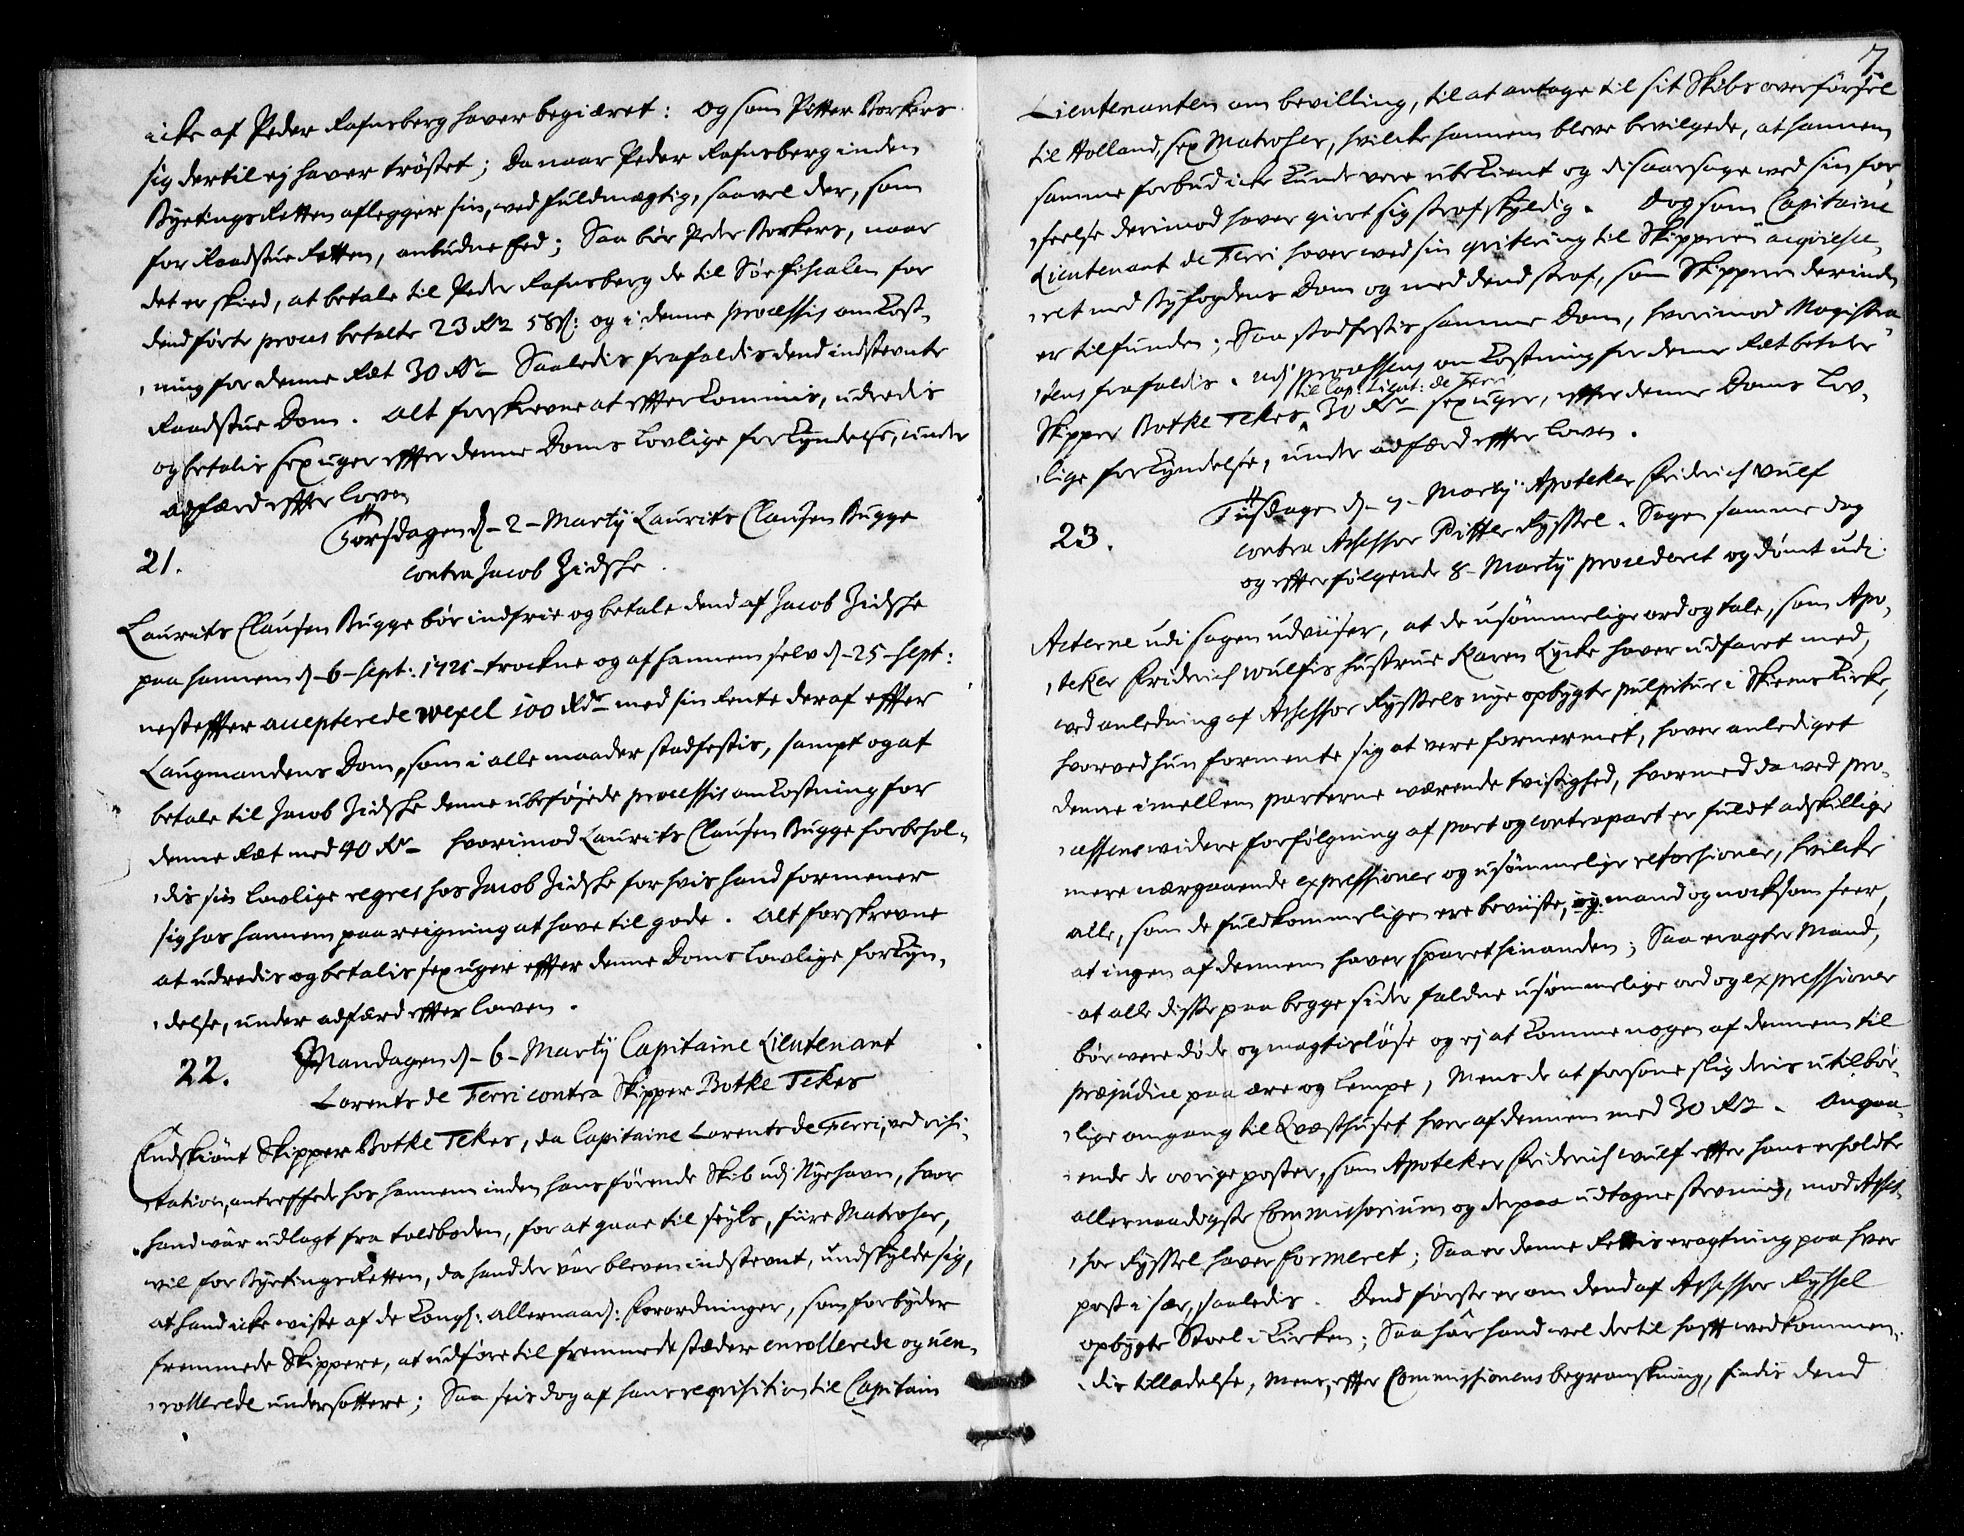 icke af Peder Rafnsberg haver begiæret: og som Pitter Borkers
sig dertil ej haver trøstet; Da naar Peder Rafnsberg inden
Byetings Retten aflegger sin, ved fuldmægtig, saavel der, som
for Raadstue Retten, anbudne Eed; Saa bør Peder Borkers, naar
det er skied, at betale til Peder Rafnsberg de til Sør fiscalen for
dend førte proces betalte 23 Rdr 58 s: og i denne processis omkost-
ning for denne Ræt 30 Rdr Saaledis frafaldis dend indstevnte
Raadstue Dom. Alt forskrevne at efterkommis, udredis
og betalis sex uger effter denne Doms lovlige forkyndelse, under
adfærd effter loven
21.
Torsdagen d. 2 Martÿ Laurits Clausen Bugge
contra Jacob Zidsche.
Laurits Clausen Bugge bør indfrie og betale dend af Jacob Zidsche
paa hannem d. 6 Sept: 1721 trockne og af hannem selv d. 25 Sept:
nesteffter accepterede vexel 100 Rdr med sin Rente deraf effter
Laugmandens Dom, som i alle maader stadfestis, sampt og at
betale til Jacob Zidsche denne ubeføjede processis omkostning for
denne Ræt med 40 Rdr hvorimod Laurits Clausen Bugge forbehol-
dis sin lovlige regres hos Jacob Zidsche for hvis hand formener
sig hos hannem paa reigning at have til gode. Alt forskrevne
at udredis og betalis sex uger effter denne Doms lovlige forkyn-
delse, under adfærd effter loven.
22.
Mandagen d. 6 Martÿ Capitaine Lieutenant
Lorents de Ferri contra Skipper Botke Tekes
Endskiønt Skipper Botke Tekes, da Capitaine Lorents de Ferri, ved visi-
tation, antreffede hos hannem inden hans førende Skib udi Nyehavn, hvor
hand vâr udlagt fra toldboden, for at gaae til seyls, fiire Matroser,
vil for Byetings Retten, da hand der vâr bleven indstevnt, undskylde sig,
at hand icke viste af de Kongl: allernaad: Forordninger, som forbyder
fremmede Skippere, at udføre til fremmede stæder enrollerede og uen-
rollerede undersottere; Saa seis dog af hans reqvisition til Capitain
7.
Lieutenanten om bevilling, til at antage til sit Skibs overførsel
til Holland, sex Matroser, hvilcke hannem bleve bevilgede, at hannem
samme forbud icke kunde vere ubekient og disaarsage ved sin for-
seelse derimod haver giort sig straf skyldig. Dog som Capitaine
Lieutenant de Ferri haver ved sin qvitering til Skipperen acqviesce-
ret med Byfogdens Dom og med dend straf, som Skipperen derinden
er tilfunden; Saa stadfestis samme Dom, hvorimod Magistra-
tens frafaldis. Udi processens omkostning for denne Ræt betaler
til Cap: Lieut: de Ferri
Skipper Botke Tekes 30 Rdr sex uger, effter denne Doms lov-
lige forkyndelse, under adfærd effter loven.
23.
Tiisdagen d. 7 Martÿ Apoteker Friderich Wulf
contra Assessor Pitter Ryssel. Sagen samme dag
og effterfølgende 8 Martÿ procederet og dømt udi.
Acterne udi sagen udviiser, at de usømmelige ord og tale, som Apo-
teker Friderich Wulfes hustrue Karen Lycke haver udfaret med,
ved anledning af Assessor Ryssels nye opbygte pulpitur i Skeens Kircke,
hvorved hun formente sig at vere fornermet, haver anlediget
denne imellem parterne værende tvistighed, hvormed da ved pro-
cessens videre forfølgning af part og contrapart er fuldt adskillige
mere nærgaaende expressioner og usømmelige retorsioner, hvilcke
alle, som de fuldkommeligen ere beviiste, og mand og nocksom seer,
at ingen af dennem haver sparet hinanden; Saa eragter Mand,
at alle disse paa begge sider faldne usømmelige ord og expressioner
bør vere døde og magtisløse og ej at komme nogen af dennem til
præjudice paa ære og lempe, Mens de at forsone slig deris utilbør-
lige omgang til Qvæsthuset hver af dennem med 30 Rdr. Angaa-
ende de øvrige poster, som Apoteker Friderich Wulf effter hans erholdte
allernaadigste Commissorium og derpaa udtagne stevning, mod Asses-
sor Ryssel haver formeret; Saa er denne Rettis eragtning paa hver
post i sær, saaledis. Dend første er om dend af Assessor Ryssel
opbygte Stoel i Kircken; Saa hâr hand vel dertil hafft vedkommen-
dis tilladelse, Mens, effter Commissionens begranskning, findis dend